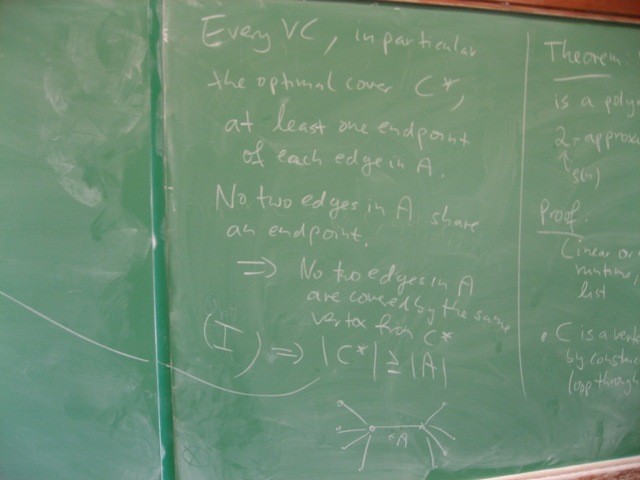 Every VC, in particular
the optimal cover C*,
at least one endpoint
of each edge in A.
No two edges in A share
an endpoint.
=> No two edges in A
are covered by the same
vertex from C*
(I) => |C*| ≥ |A|
A
Theorem:
is a poly
2-approx
s(n)
Proof.
Linear or
runtime,
list
• C is a vert
by const
loop through